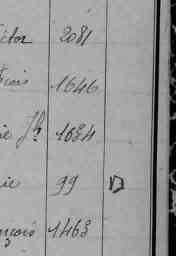 ictor 2081
çois 1646
ie Jh 1034
ie 99 D
nçois 1463